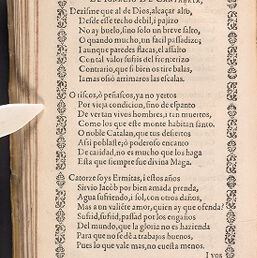 DE IGNACIO DE CANTABRIA,
Dezisme que al de Dios, alcaçar alto,
Desde este techo debil, i pajizo
No ay buelo, sino solo un breve salto,
O quando mucho, un facil passadizo;
I aunque paredes flacas, el assalto
Con tal valor sufris del frenterizo
Contrario, que si bien os tire balas,
Iamas osò arrimaros las escalas.
O riscos, ò peñascos, ya no yertos
Por vieja condicion, sino de espanto
De ver tan vivos hombres, i tan muertos,
Como los que este monte habitan santo.
O noble Catalan, que tus desiertos
Assi poblaste; ò poderoso encanto
De caridad, no es mucho que los haga
Esta que siempre fue divina Maga.
Catorze soys Ermitas, i estos años
Sirvio Iacòb por bien amada prenda,
Agua sufriendo, i sol, con otros daños,
Mas a un valiẽte amor, quien ay que ofenda?
Sufrid, sufrid, passad por los engaños
Del mundo, que la gloria no es hazienda
Para que no se dè a trabajos buenos,
Pues lo que vale mas, no cuesta menos.
I vos